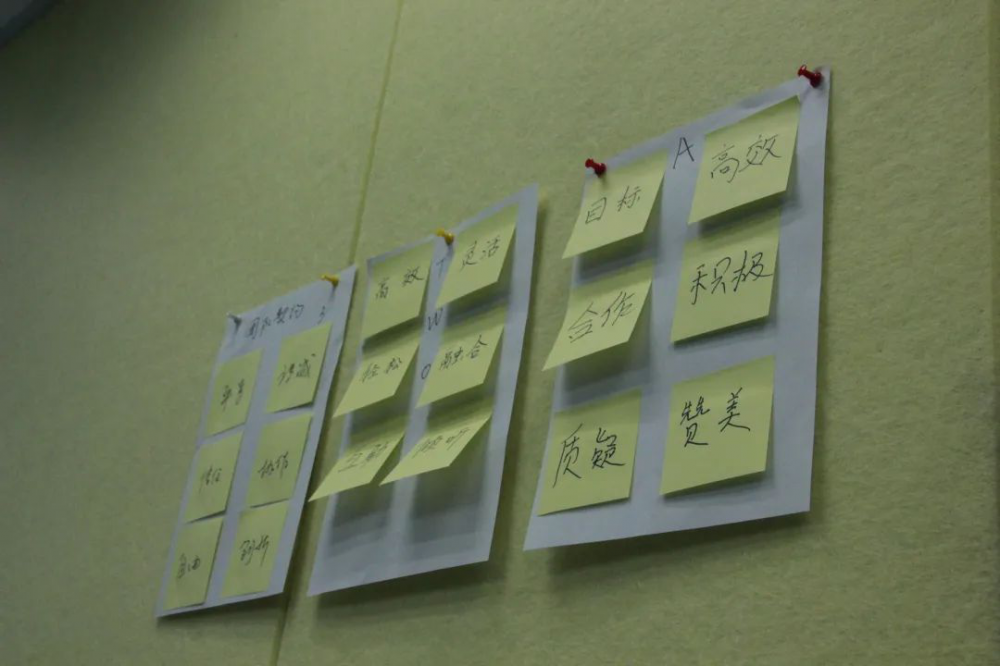 团队契约 3
平等
坦诚
信任
协作
自由
创新
T
W
O
高效
灵活
轻松
融合
互动
A
目标
高效
合作
积极
质疑
赞美